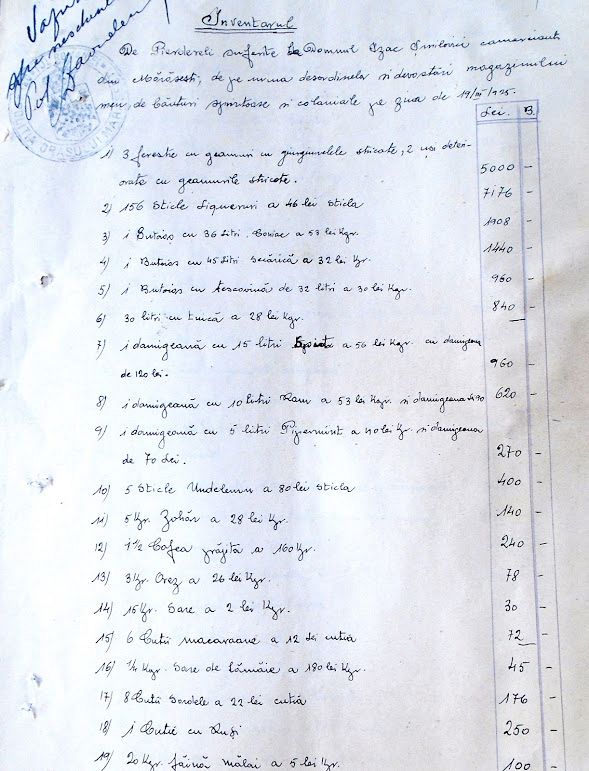 Inventarul
De Pierdereli suferite la Domnul Izac Șmilovii comerciant
din Mărășești, de pe urma desordinelor si devastări magazinului
meu, de băuturi spirtoase si coloniale pe ziua de 19/III/1925.
Lei. B.
1) 3 ferestre cu geamuri cu giurgiuvelele stricate, 2 uși deteri-
orate cu geamurile stricate. 5000 -
2) 156 Sticle Liqueruri a 46 lei Sticla 7176 -
3) 1 Butoiaș cu 36 Litri. Coniac a 53 lei Kgr. 1908 -
4) 1 Butoiaș cu 45 Litri Secărică a 32 lei Kgr. 1440 -
5) 1 Butoiaș cu tescovină de 32 litri a 30 lei Kgr. 960 -
6) 30 litri cu țuică a 28 lei Kgr. 840 -
7) 1 damigeană cu 15 litri Spirt a 56 lei Kgr. cu damigean
de 120 lei. 960 -
8) 1 damigeană cu 10 Litri Rum a 53 lei Kgr. si damigeana de 90 620 -
9) 1 damigeană cu 5 litri a 40 lei Kgr. si damigeana
de 70 Lei. 270 -
10) 5 Sticle Undelemn a 80 lei Sticla 400 -
11) 5 Kgr. Zahăr a 28 lei Kgr. 140 -
12) 1 1/2 Cafea prăjită a 160 Kgr. 240 -
13) 3 Kgr. Orez a 26 lei Kgr. 78 -
14) 15 Kgr. Sare a 2 lei Kgr. 30 -
15) 6 Cutii macaroane a 12 Lei cutia 72 -
16) 1/4 Kgr. Sare de Lămâie a 180 lei Kgr. 45 -
17) 8 Cutii Sardele a 22 lei cutia 176 -
18) 1 Cutie cu Ruși 250 -
19) 20 Kgr. făină mălai a 5 lei Kgr. 100 -